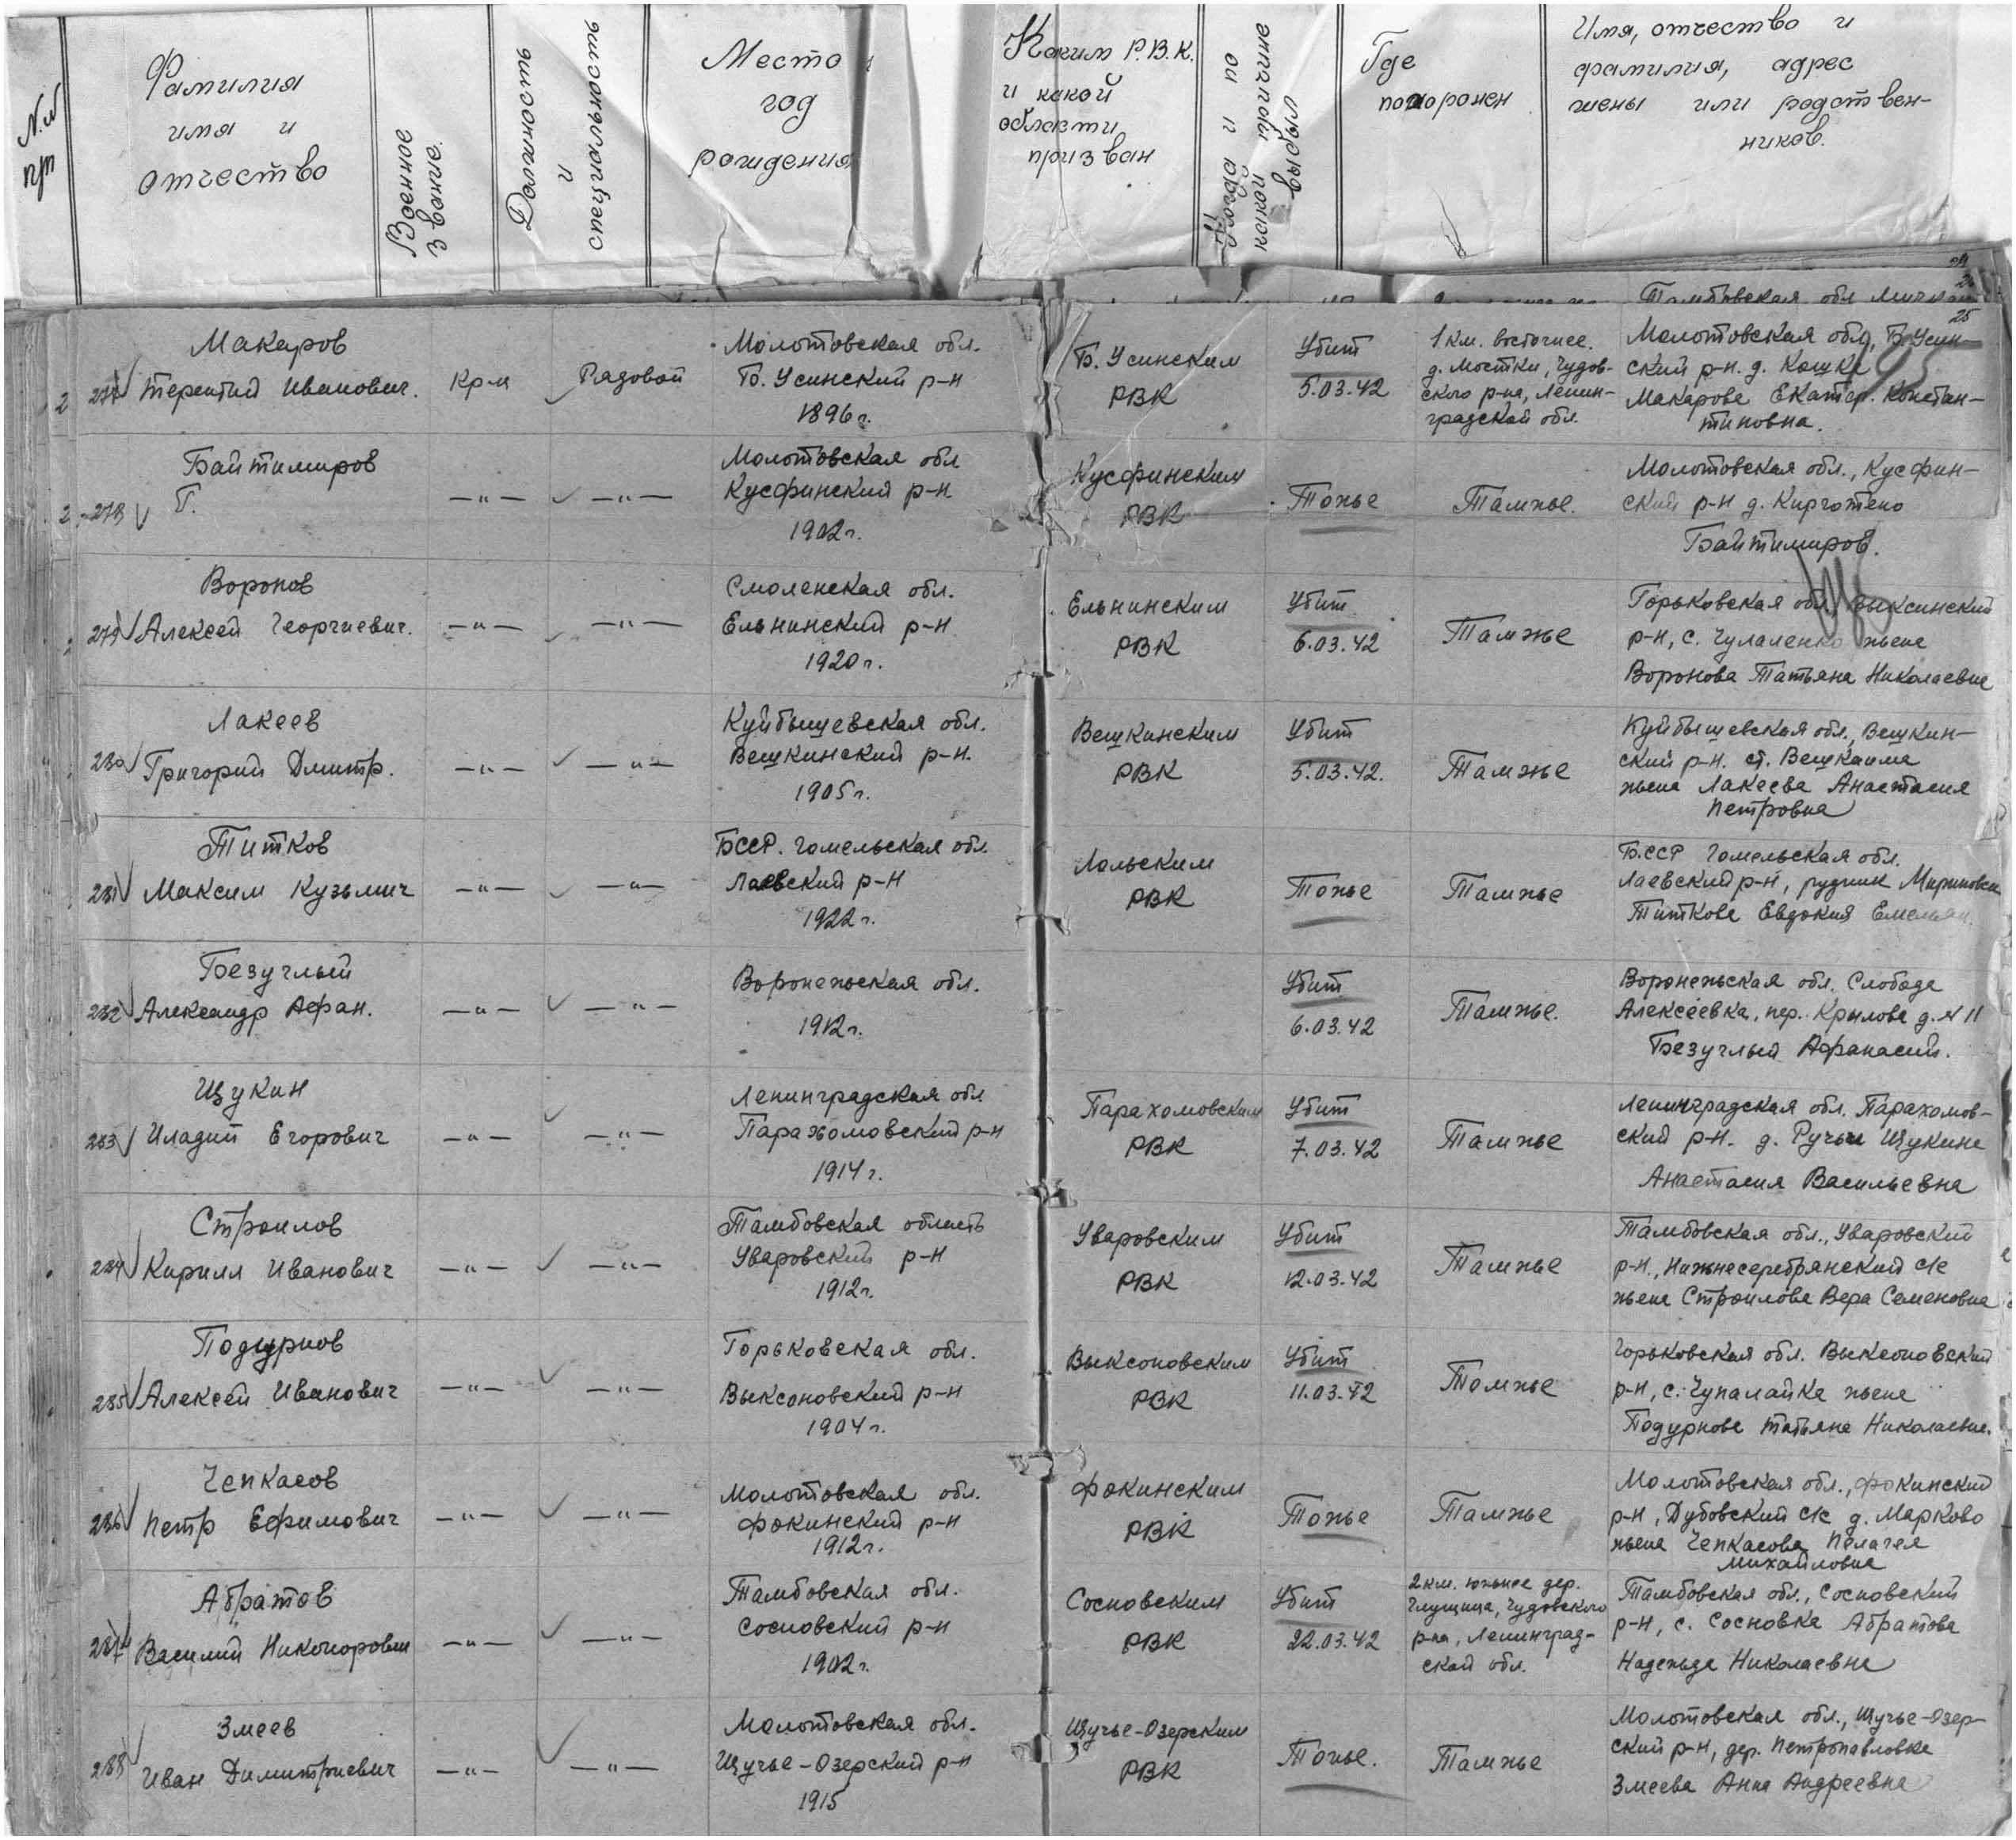 N.N
пп
Фамилия
имя и
отчество
Военное
звание.
Должность
и
специальность
Место
год
рождения
Каким Р.В.К.
и какой
области
призван
Когда и по
какой причине
выбыл
Где
похоронен
Имя, отчество и
фамилия, адрес
жены или родствен-
ников.
Тамбовская обл
25
277 Макаров
Терентий Иванович.
Кр-ц
Рядовой
Молотовская обл.
Б. Усинский р-н
1896г.
Б. Усинским
РВК
Убит
5.03.42
1 км. восточнее.
д. Мостки, Чудов-
ского р-на, Ленин-
градской обл.
Молотовская обл, Б. Усин-
ский р-н. д.
Макарова Екатер. Констан-
тиновна.
278 Байтимиров
Г.
—"—
—"—
Молотовская обл
Кусфинский р-н.
1902г.
Кусфинским
РВК
Тоже
Тамже.
Молотовская обл., Кусфин-
ский р-н д.
Байтимиров.
279 Воронов
Алексей Георгиевич.
—"—
—"—
Смоленская обл.
Ельнинский р-н
1920г.
Ельнинским
РВК
Убит
6.03.42
Тамже
Горьковская обл. Выксинский
р-н, с. жена
Воронова Татьяна Николаевна
280 Лакеев
Григорий Дмитр.
—"—
—"—
Куйбышевская обл.
Вешкинский р-н.
1905г.
Вешкинским
РВК
Убит
5.03.42.
Тамже
Куйбышевская обл., Вешкин-
ский р-н. ст. Вешкаима
жена Лакеева Анастасия
Петровна
281 Титков
Максим Кузьмич
—"—
—"—
БССР. Гомельская обл.
Лаевский р-н
1922г.
РВК
Тоже
Тамже
БССР Гомельская обл.
Лаевский р-н, рудник
Титкова Евдокия
282 Безуглый
Александр Афан.
—"—
—"—
Воронежская обл.
1912г.
Убит
6.03.42
Тамже.
Воронежская обл. Слобода
Алексеевка, пер. Крылова д. N 11
Безуглый Афанасий.
283 Щукин
Иладий Егорович
—"—
—"—
Ленинградская обл
Парахомовский р-н
1914г.
Парахомовским
РВК
Убит
7.03.42
Тамже
Ленинградская обл. Парахомов-
ский р-н. д. Ручьи Щукина
Анастасия Васильевна
284 Строилов
Кирилл Иванович
—"—
—"—
Тамбовская область
Уваровский р-н
1912г.
Уваровским
РВК
Убит
12.03.42
Тамже
Тамбовская обл., Уваровский
р-н., Нижнесеребрянский с/с
жена Строилова Вера Семеновна
285 Подурнов
Алексей Иванович
—"—
—"—
Горьковская обл.
Выксоновский р-н
1904г.
Выксоновским
РВК
Убит
11.03.42
Тамже
Горьковская обл. Выксоновский
р-н, с. Чупалайка жена
Подурнова Татьяна Николаевна.
286 Чепкасов
Петр Ефимович
—"—
—"—
Молотовская обл.
Фокинский р-н
1912г.
Фокинским
РВК
Тоже
Тамже
Молотовская обл., Фокинский
р-н, Дубовский с/с д. Марково
жена Чепкасова Пелагея
Михайловна
287 Абратов
Василий Никонорович
—"—
—"—
Тамбовская обл.
Сосновский р-н
1902г.
Сосновским
РВК
Убит
22.03.42
2 км. южнее дер.
Глущица, Чудовского
р-на, Ленинград-
ской обл.
Тамбовская обл., Сосновский
р-н, с. Сосновка Абратова
Надежда Николаевна
288 Змеев
Иван Димитриевич
—"—
—"—
Молотовская обл.
Щучье-Озерский р-н
1915
Щучье-Озерским
РВК
Тоже.
Тамже
Молотовская обл., Щучье-Озер-
ский р-н, дер. Петропавловка
Змеева Анна Андреевна